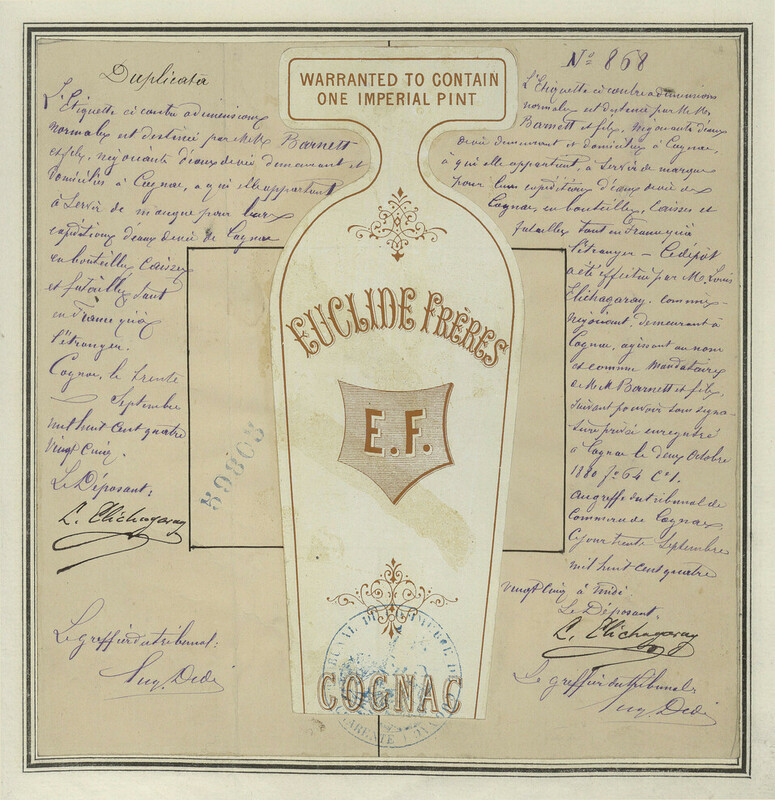 Duplicata
L'Etiquette ci contre a dimensions
normales est destinée par M.M. Barnett
et fils, négociants d'eaux de vie demeurant et
domiciliés à Cognac, à qui elle appartient
à servir de marque pour leurs
expéditions d'eaux de vie de Cognac
en bouteilles, caisses
et futailles tant
en France qu'à
l'étranger.
Cognac, le trente
Septembre
mil huit cent quatre
vingt cinq.
Le Déposant:
L. Elichagaray
Le greffier du tribunal:
59803
WARRANTED TO CONTAIN
ONE IMPERIAL PINT
EUCLIDE FRÈRES
E. F.
COGNAC
No 868
L'Etiquette ci contre a dimensions
normales est destinée par M.M.
Barnett et fils, négociants d'eaux
de vie demeurant et domiciliés à Cognac,
à qui elle appartient, à servir de marque
pour leurs expéditions d'eaux de vie de
Cognac, en bouteilles, caisses et
futailles tant en France qu'à
l'étranger — Ce dépôt
a été effectué par M. Louis
Elichagaray, commis-
négociant, demeurant à
Cognac, agissant au nom
et comme mandataire
de M.M. Barnett et fils,
suivant pouvoir sous signa-
ture privée enregistré
à Cognac le deux Octobre
1880 fo 64 Ce 1.
Au greffe du tribunal de
Commerce de Cognac
Ce jour trente Septembre
mil huit cent quatre
vingt cinq à midi
Le Déposant
L. Elichagaray
Le greffier du tribunal